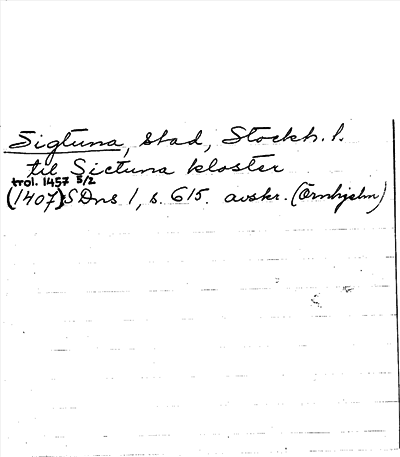 Sigtuna, stad, Stockh. l.
til Sictuna kloster
trol. 1457 5/2
(1407) SDns 1, s. 615. avskr. (Örnhjelm)